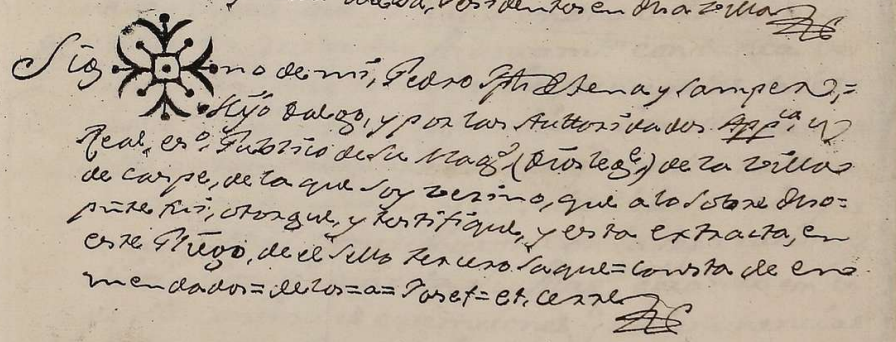 residentes en dha villa
Sig no de mi, Pedro Jph Dhena y Samper,=
Hijo Dalgo, y por las Auttoridades App.ca, y
Real, es.o, Publico de Su Mag.d (Dios leg.e) de la villa
de Caspe, de la que soy vezino, que a lo sobre dho=
pnte fui, otorgue, y testifique, y esta extracta, en
este Pliego, de el sello tercero saque= consta de en
mendados= de los= a= Joset= et, cerre